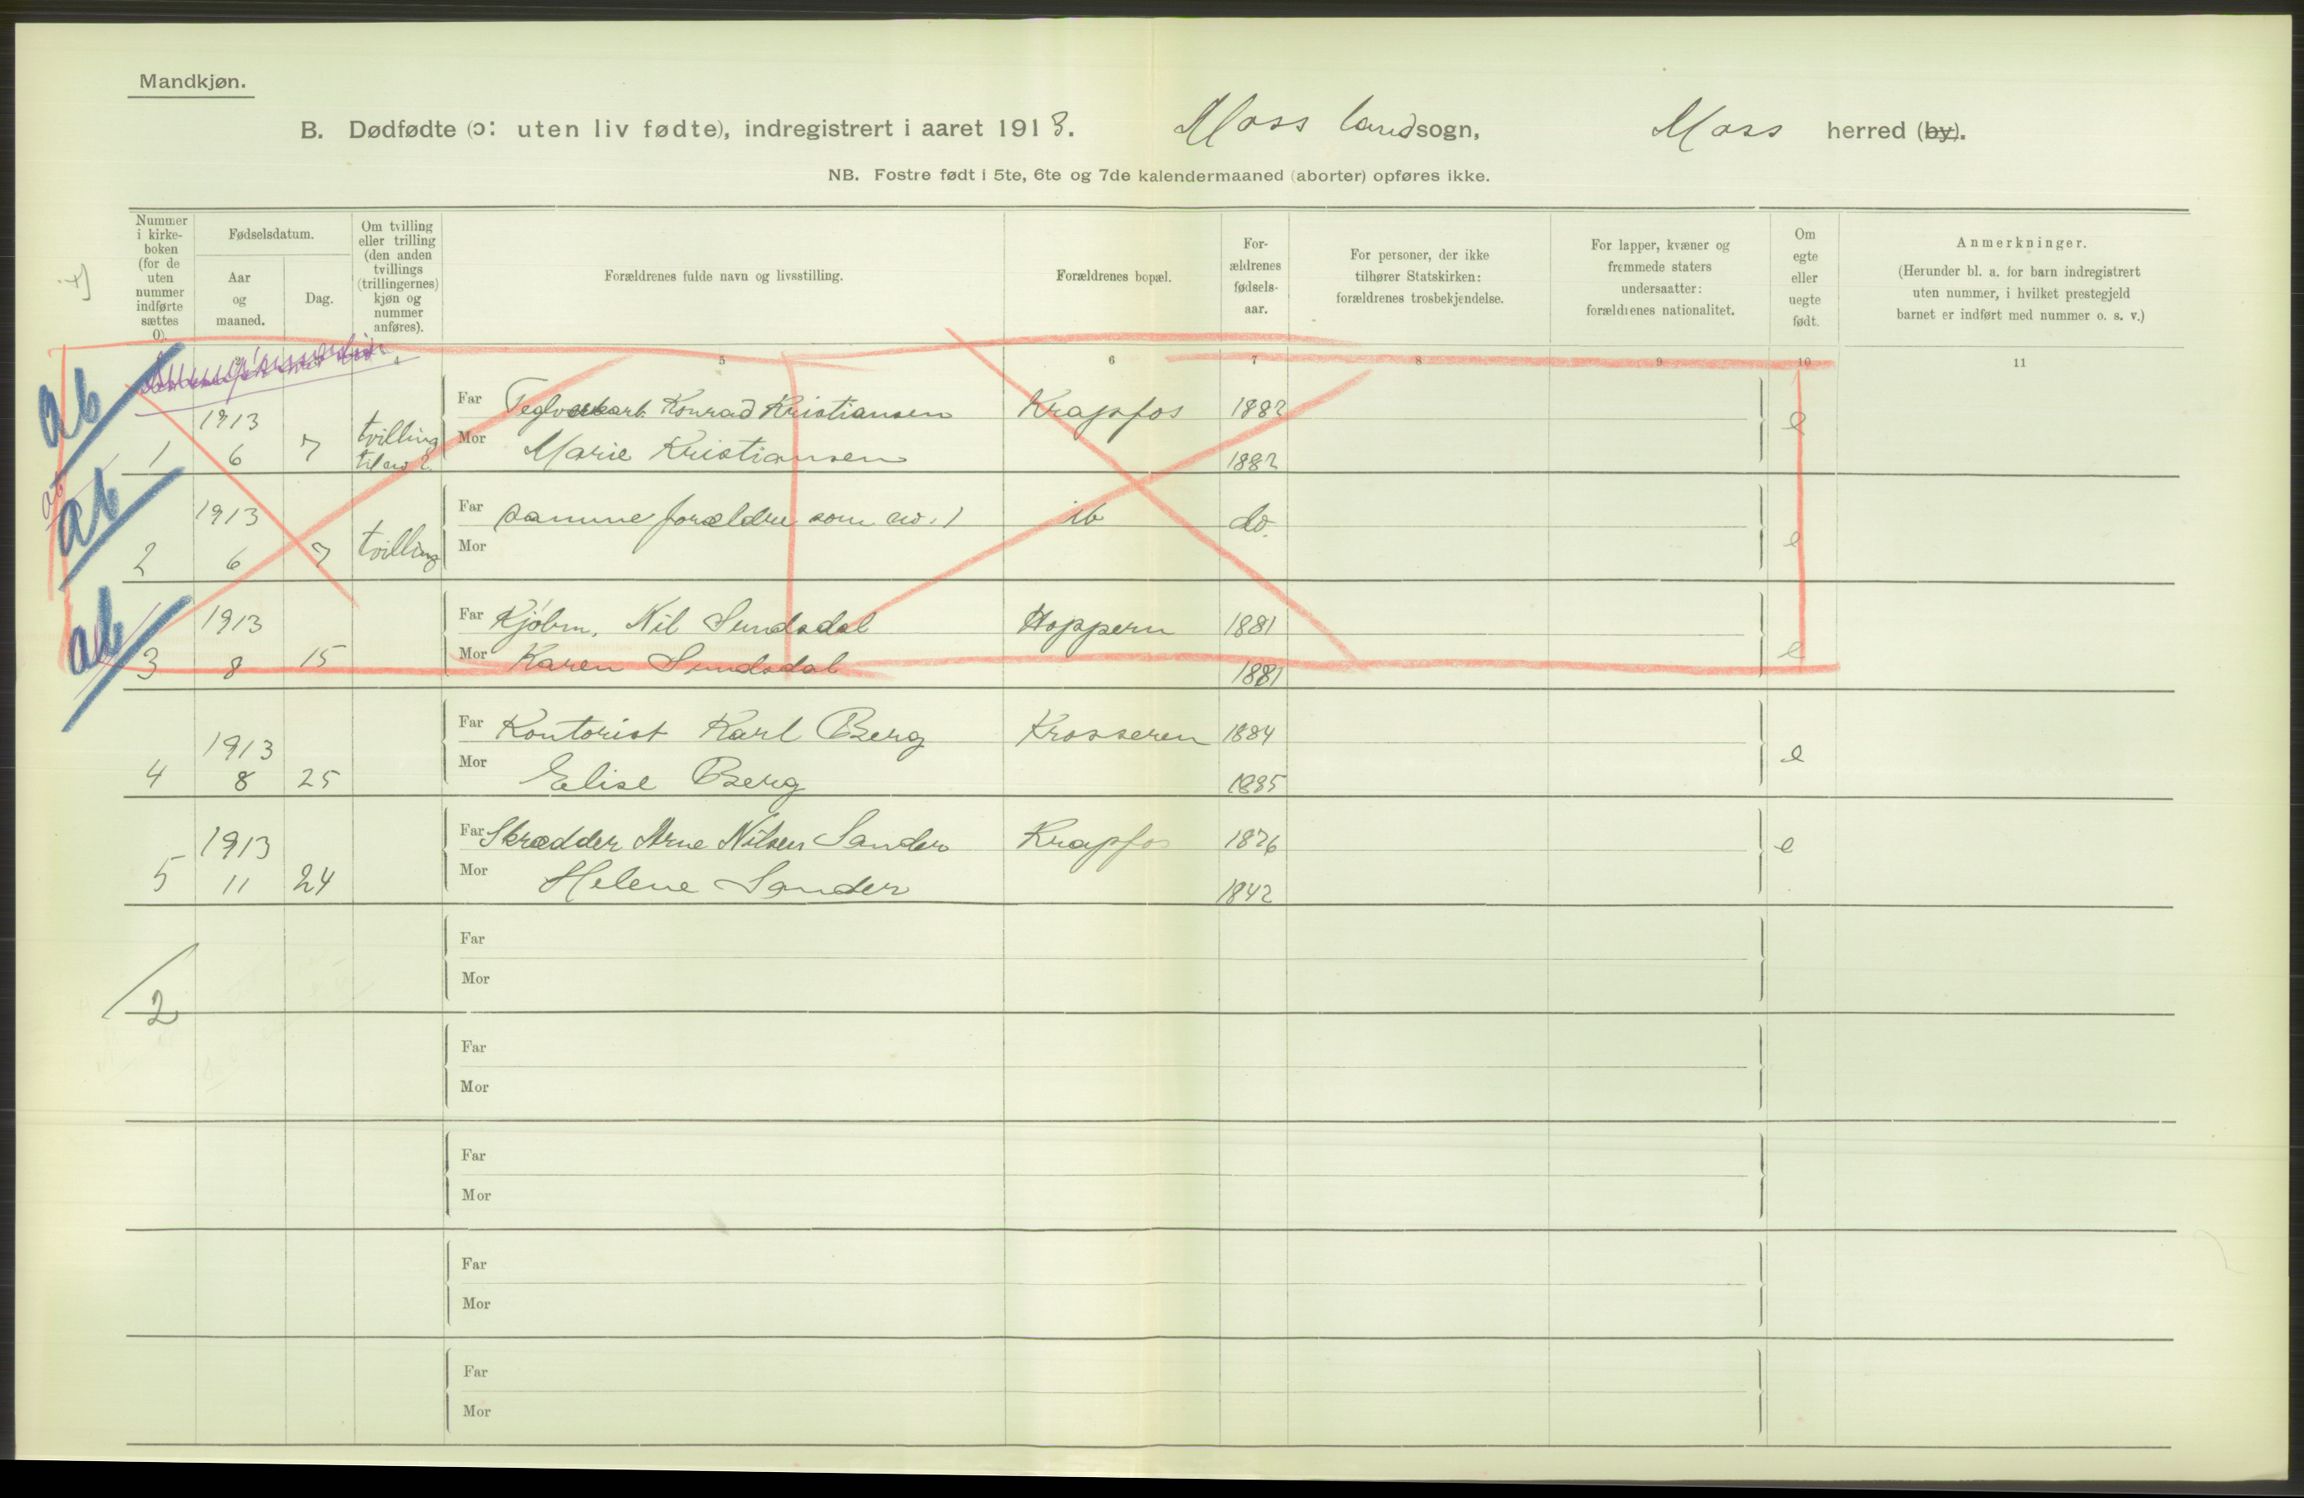 Mandkjøn.
B. Dødfødte (ɔ: uten liv fødte), indregistrert i aaret 1913. Moss landsogn, Moss herred (by).
NB. Fostre født i 5te, 6te og 7de kalendermaaned (aborter) opføres ikke.
Nummer i kirke-boken (for de uten nummer indførte sættes 0).
Fødselsdatum.
Aar og maaned.
Dag.
Om tvilling eller trilling (den anden tvillings (trillingernes) kjøn og nummer anføres).
Forældrenes fulde navn og livsstilling.
Forældrenes bopæl.
For-ældrenes fødsels-aar.
For personer, der ikke tilhører Statskirken: forældrenes trosbekjendelse.
For lapper, kvæner og fremmede staters undersaatter: forældrenes nationalitet.
Om egte eller uegte født.
Anmerkninger.
(Herunder bl. a. for barn indregistrert uten nummer, i hvilket prestegjeld barnet er indført med nummer o. s. v.)
4 5 6 7 8 9 10 11
ab
1913 Far Teglverkarb. Konrad Kristiansen Krapfos 1882 e
1 6 7 tvilling til no 2. Mor Marie Kristiansen 1882
ab
ab
1913 Far samme forældre som no. 1 ib do. e
2 6 7 tvilling Mor
ab
1913 Far Kjøbm. Nil Sundsdal Hoppern 1881 e
3 8 15 Mor Karen Sundsdal 1881
1913 Far Kontorist Karl Berg Krosseren 1884 e
4 8 25 Mor Elise Berg 1885
1913 Far Skrædder Arne Nilsen Sander Krapfos 1876 e
5 11 24 Mor Helene Sander 1842
Far
Mor
2
Far
Mor
Far
Mor
Far
Mor
Far
Mor